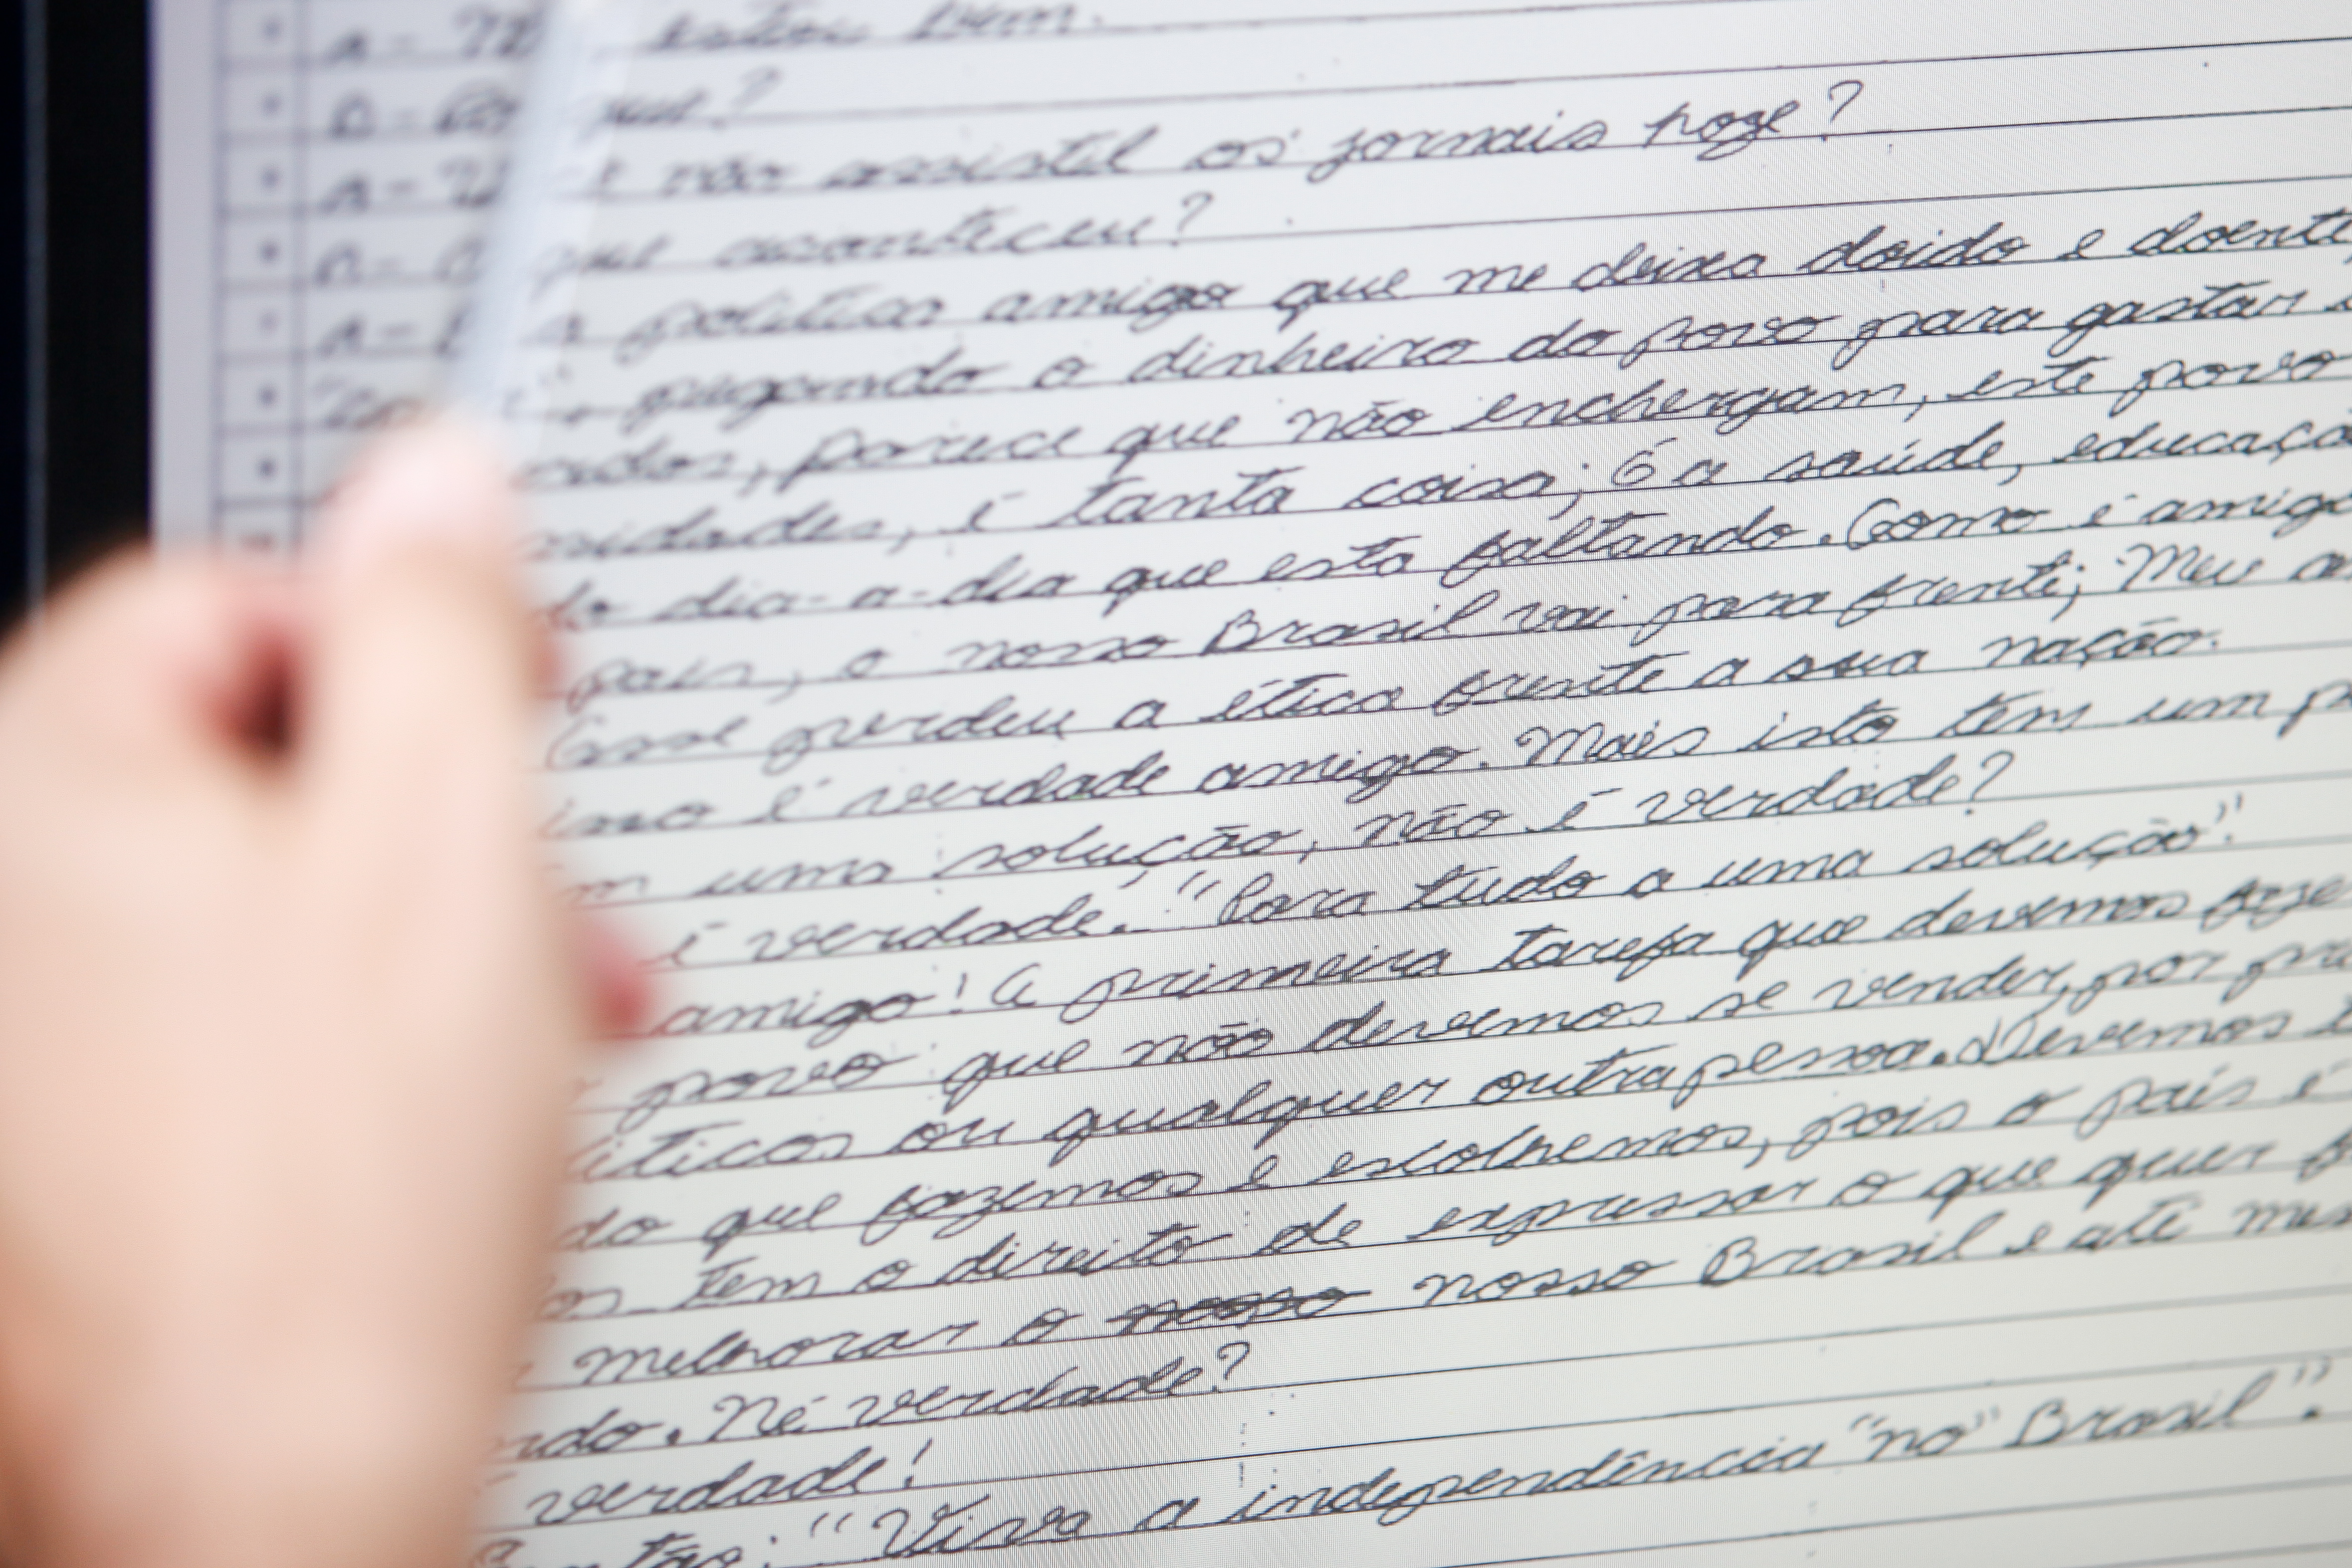 estou bem.
que?
não assistil os jornais hoze?
que aconteceu?
politica amigo que me deixa doido e doente,
pegando o dinheiro do povo para gastar
parece que não enchergam, este povo
é tanta coisa; é a saúde, educaçã
do dia-a-dia que esta faltando. Como é amigo
pais, o nosso Brasil vai para frente; Meu a
Esse perdeu a ética frente a sua nação.
isso é verdade amigo. Mais isto tem um p
m uma solução, não é verdade?
é verdade. "Para tudo a uma solução".
amigo! A primeira tarefa que devemos faze
povo que não devemos se vender, por
iticos ou qualquer outra pessoa. Devemos
do que fazemos e escolhemos, pois o país é
os tem o direito de expressar o que quer
melhorar o nosso nosso Brasil e até mes
ndo. Né verdade?
verdade!
"Viva a independência "no" Brasil".